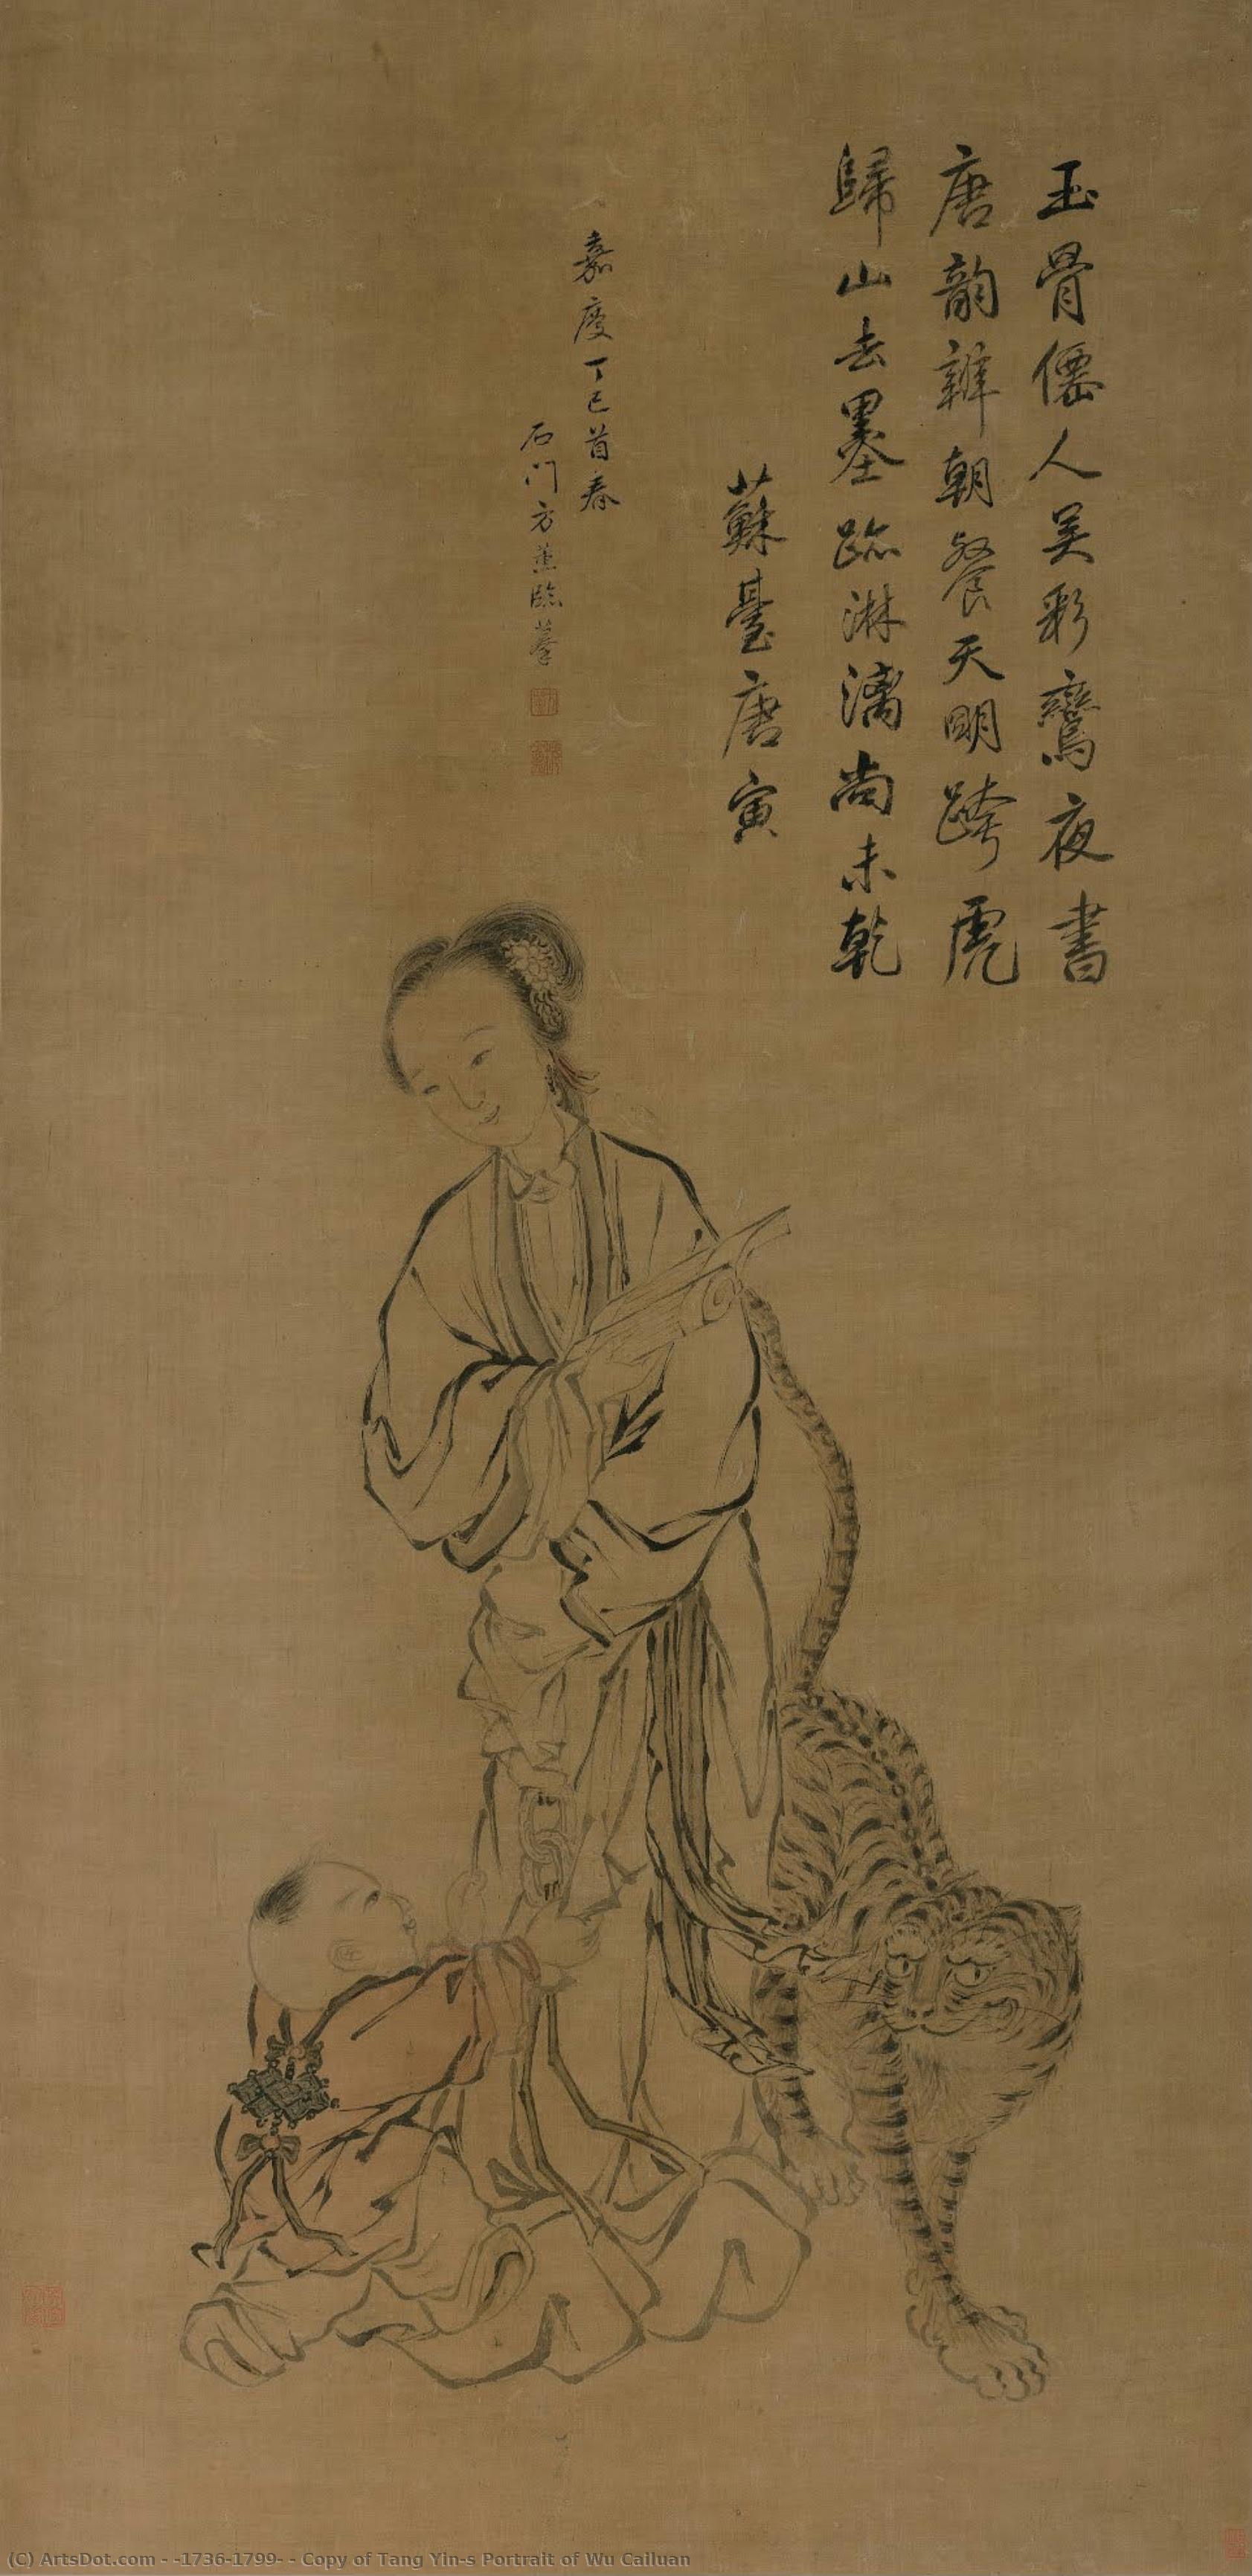 玉骨僊人吴彩鸞夜書
唐韻辦朝餐天明跨虎
歸山去墨跡淋漓尚未乾
蘇臺唐寅
嘉慶丁巳首春
石門方薰臨摹
(C) ArtsDot.com - -1736-1799- - Copy of Tang Yin-s Portrait of Wu Cailuan